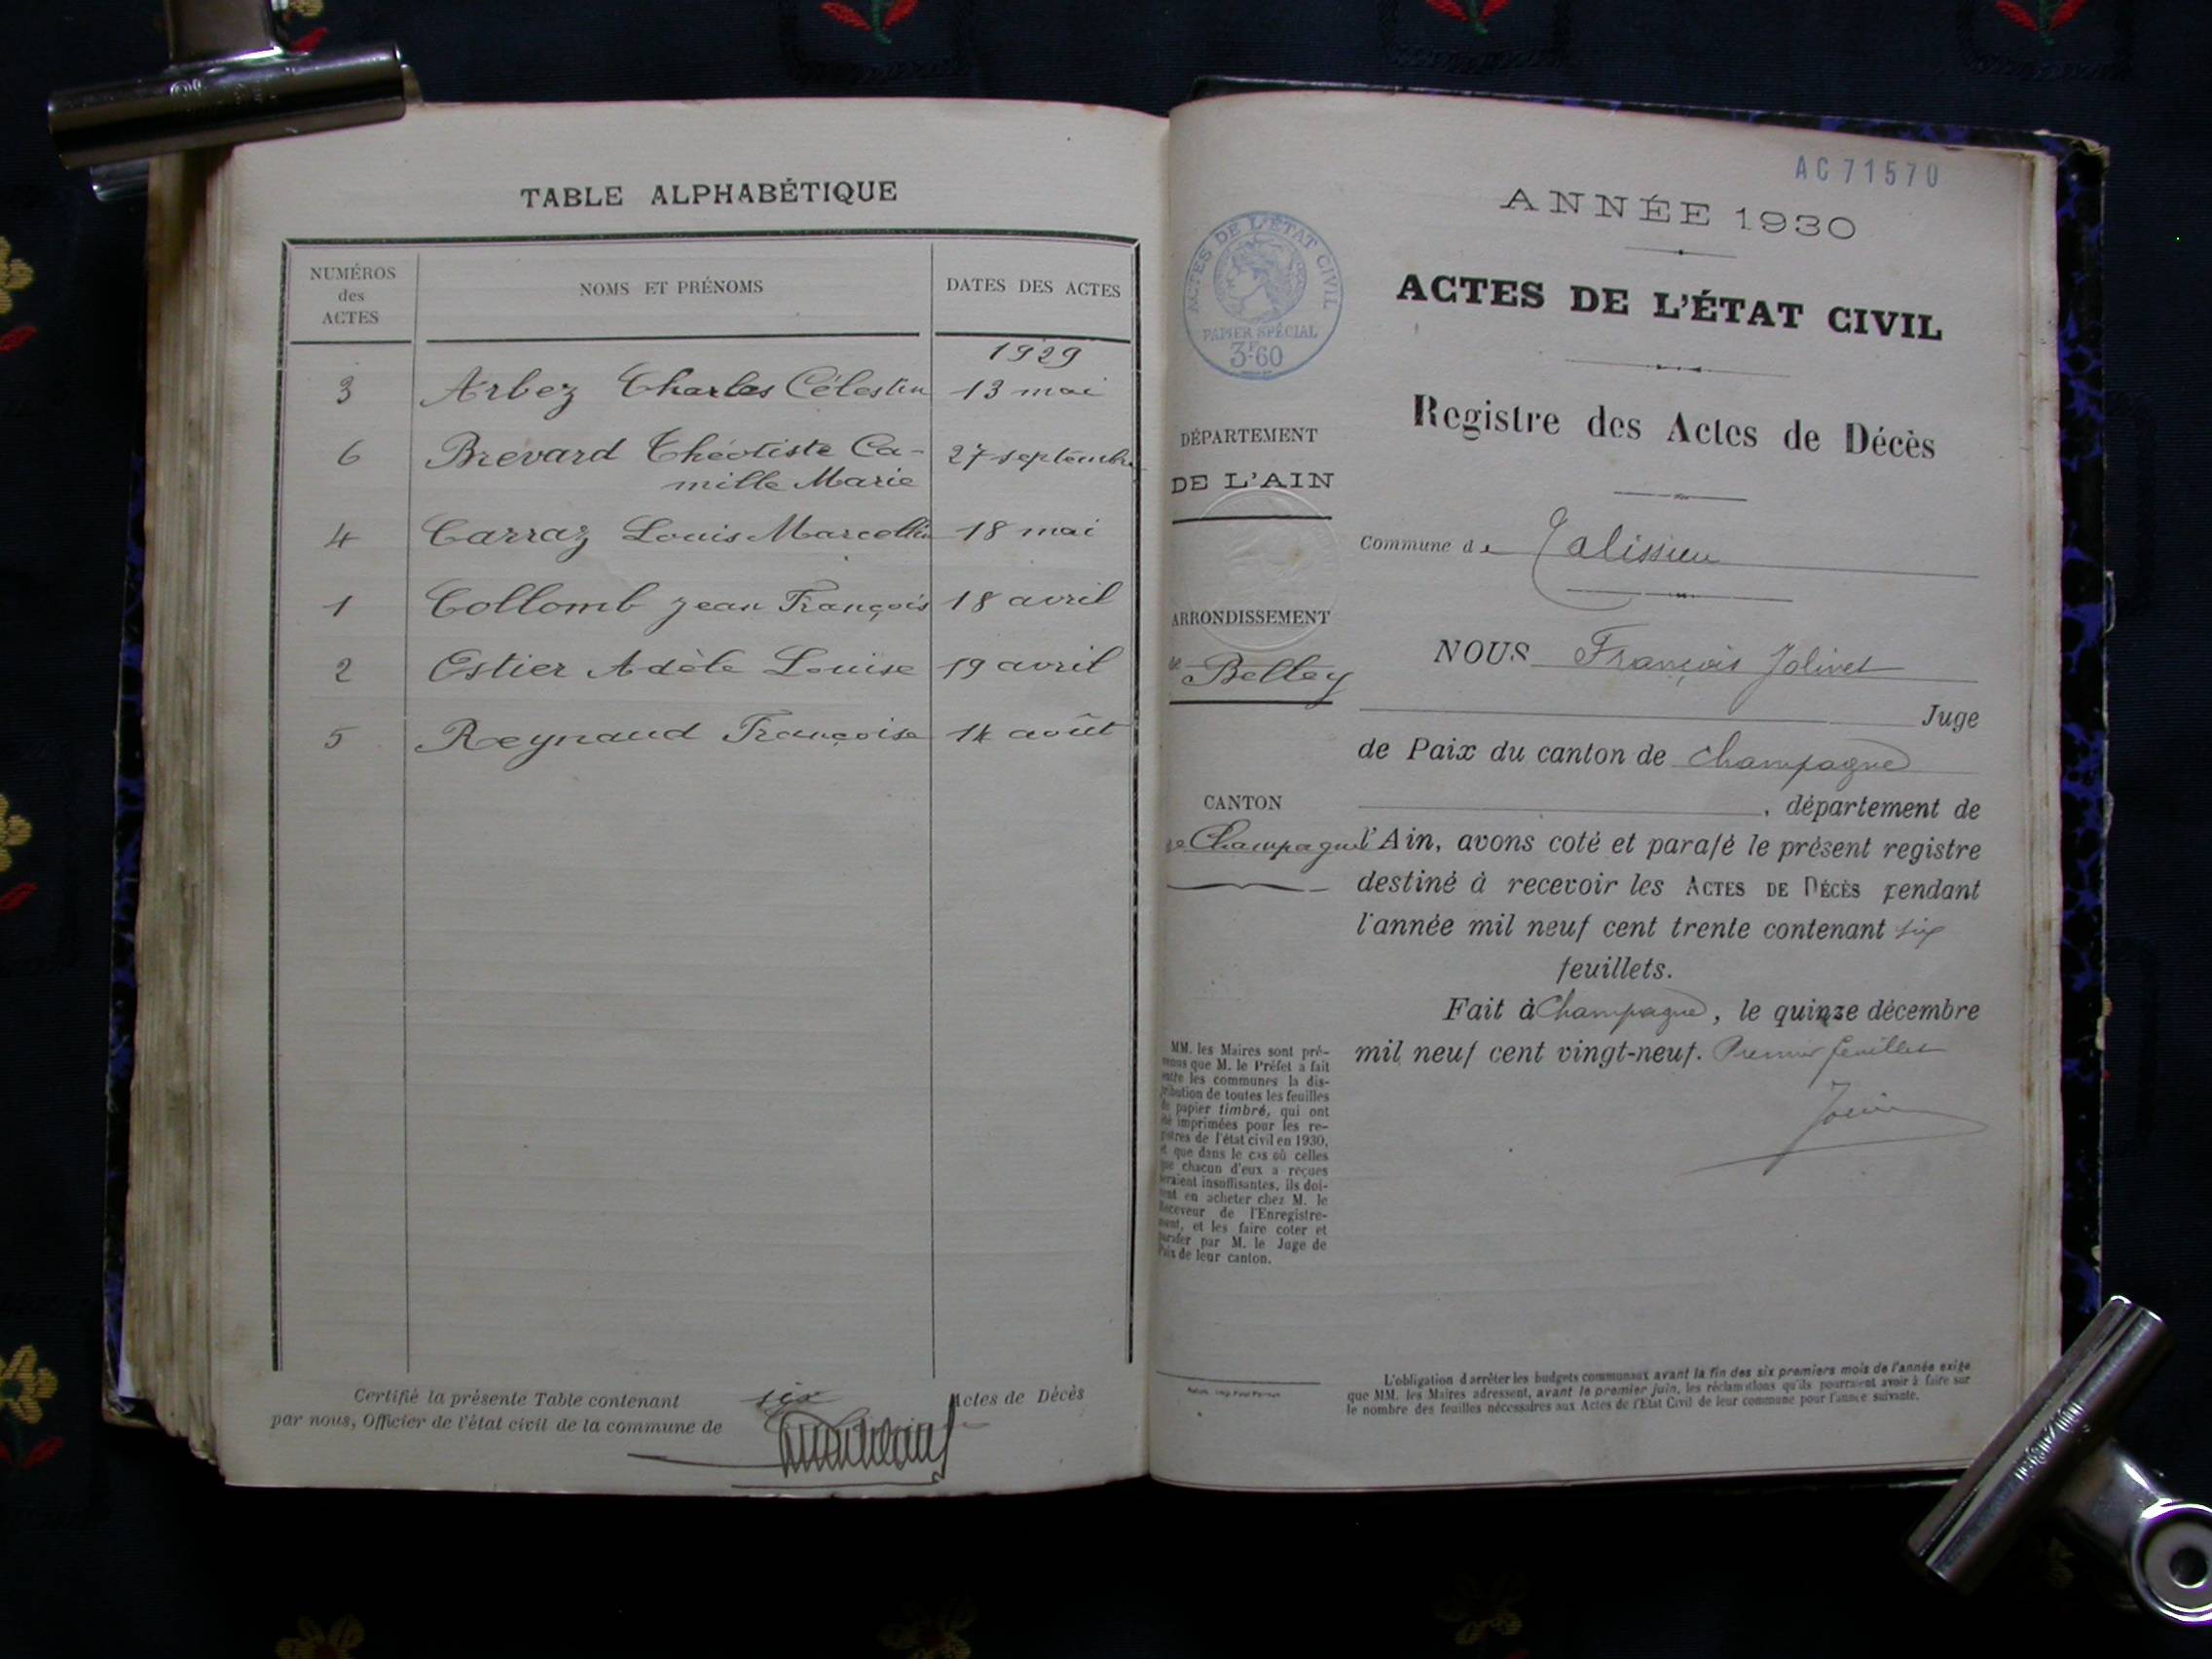 TABLE ALPHABÉTIQUE
NUMÉROS
des
ACTES
NOMS ET PRÉNOMS
DATES DES ACTES
1929
3 Arbez Charles Célestin 13 mai
6 Brevard Théotiste Ca-
mille Marie 27 septembre
4 Carraz Louis Marcellin 18 mai
1 Collomb Jean François 18 avril
2 Estier Adèle Louise 19 avril
5 Reynaud Françoise 14 août
Certifié la présente Table contenant six Actes de Décès
par nous, Officier de l'état civil de la commune de
AC71570
ANNÉE 1930
ACTES DE L'ÉTAT CIVIL
Registre des Actes de Décès
ACTES DE L'ÉTAT CIVIL
PAPIER SPÉCIAL
3F60
DÉPARTEMENT
DE L'AIN
ARRONDISSEMENT
de Belley
CANTON
de Champagne
MM. les Maires sont pré-
venus que M. le Préfet a fait
entre les communes la dis-
tribution de toutes les feuilles
de papier timbré, qui ont
été imprimées pour les re-
gistres de l'état civil en 1930,
et que dans le cas où celles
que chacun d'eux a reçues
seraient insuffisantes, ils doi-
vent en acheter chez M. le
Receveur de l'Enregistre-
ment, et les faire coter et
parafer par M. le Juge de
Paix de leur canton.
Commune de Talissieu
NOUS François Jolivet
Juge
de Paix du canton de Champagne
, département de
l'Ain, avons coté et parafé le présent registre
destiné à recevoir les ACTES DE DÉCÈS pendant
l'année mil neuf cent trente contenant six
feuillets.
Fait à Champagne, le quinze décembre
mil neuf cent vingt-neuf. Premier feuillet
L'obligation d'arrêter les budgets communaux avant la fin des six premiers mois de l'année exige
que MM. les Maires adressent, avant le premier juin, les réclamations qu'ils pourraient avoir à faire sur
le nombre des feuilles nécessaires aux Actes de l'Etat Civil de leur commune pour l'année suivante.